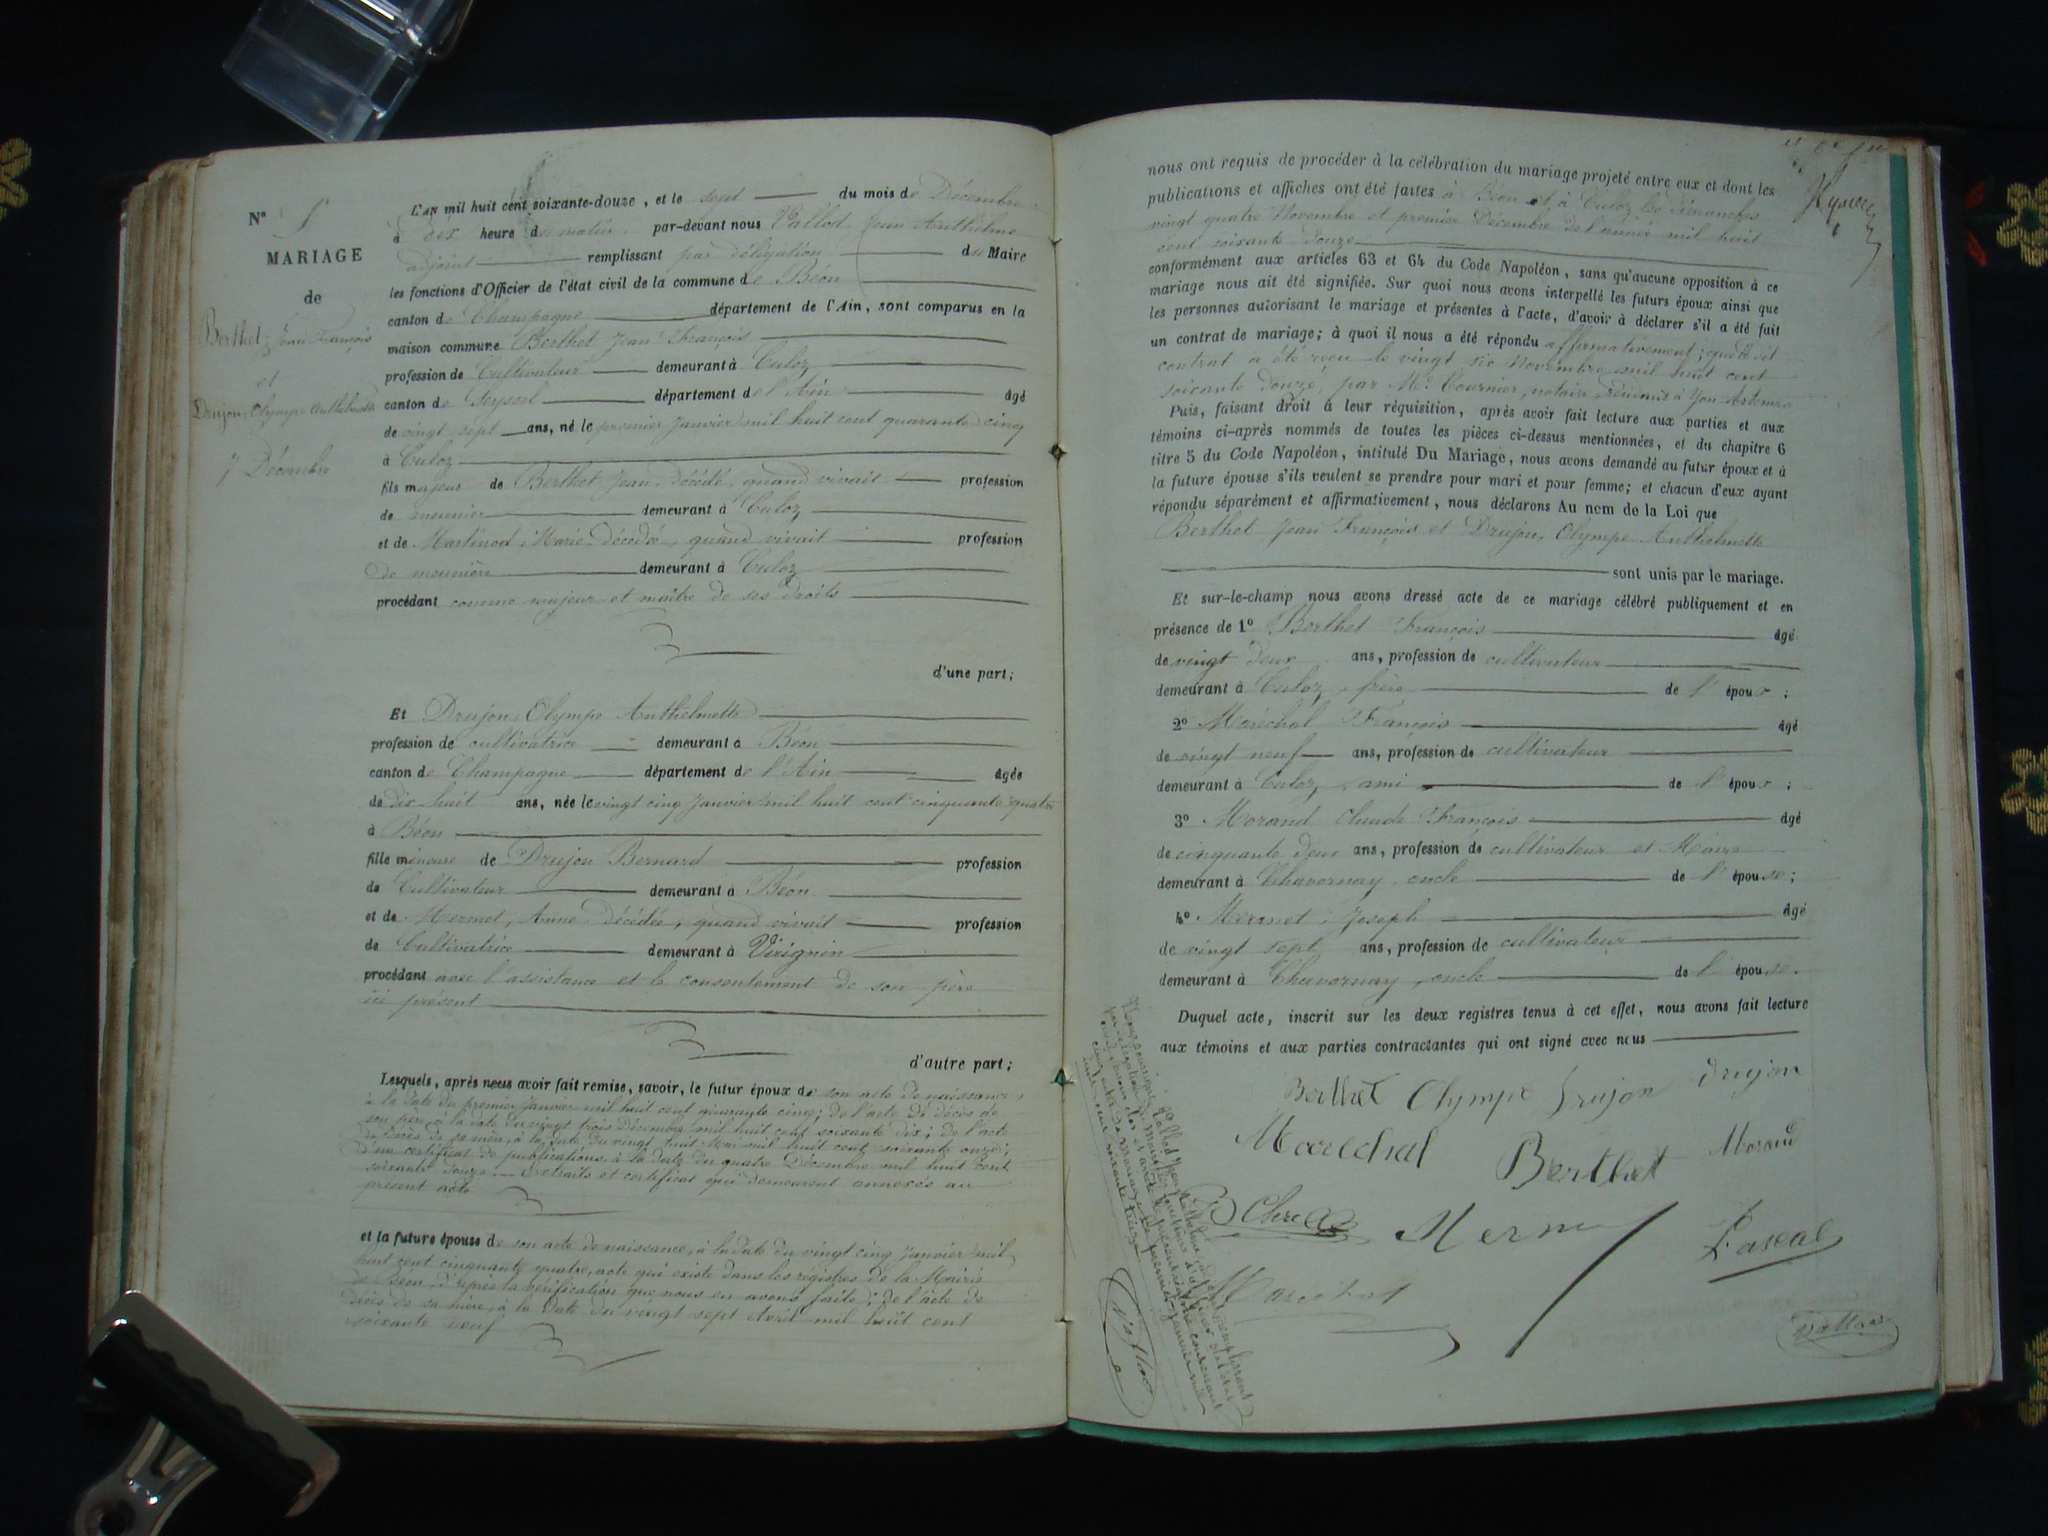 N° 5
MARIAGE
de
Berthet, Jean François
et
Drujon, Olympe Anthelmette
7 Décembre
L'AN mil huit cent soixante-douze, et le sept du mois de Décembre
à dix heure du matin par-devant nous Vallod Jean Anthelme
adjoint remplissant par délégation du Maire
les fonctions d'Officier de l'état civil de la commune de Béon
canton de Champagne département de l'Ain, sont comparus en la
maison commune Berthet Jean François
profession de Cultivateur demeurant à Culoz
canton de Seyssel département de l'Ain âgé
de vingt sept ans, né le premier Janvier mil huit cent quarante cinq
à Culoz
fils majeur de Berthet Jean, décédé, quand vivait profession
de meunier demeurant à Culoz
et de Martinod Marie décédée, quand vivait profession
de meunière demeurant à Culoz
procédant comme majeur et maître de ses droits
d'une part;
Et Drujon, Olympe Anthelmette
profession de cultivatrice demeurant à Béon
canton de Champagne département de l'Ain âgée
de dix huit ans, née le vingt cinq Janvier mil huit cent cinquante quatre
à Béon
fille mineure de Drujon Bernard profession
de Cultivateur demeurant à Béon
et de Mermet, Anne décédée, quand vivait profession
de Cultivatrice demeurant à Virignin
procédant avec l'assistance et le consentement de son père
ici présent
d'autre part;
Lesquels, après nous avoir fait remise, savoir, le futur époux de son acte de naissance,
à la date du premier Janvier mil huit cent quarante cinq; de l'acte de décès de
son père, à la date du vingt trois Décembre mil huit cent soixante dix; de l'acte
de décès de sa mère, à la date du vingt huit Mai mil huit cent soixante onze;
d'un certificat de publications à la date du quatre Décembre mil huit cent
soixante douze extraits et certificat qui demeurent annexés au
présent acte
et la future épouse de son acte de naissance, à la date du vingt cinq Janvier mil
huit cent cinquante quatre, acte qui existe dans les registres de la Mairie
de Béon, d'après la vérification que nous en avons faite; de l'acte de
décès de sa mère, à la date du vingt sept Avril mil huit cent
soixante neuf
nous ont requis de procéder à la célébration du mariage projeté entre eux et dont les
publications et affiches ont été faites à Béon et à Culoz les dimanches
vingt quatre Novembre et premier Décembre de l'année mil huit
cent soixante douze
conformément aux articles 63 et 64 du Code Napoléon, sans qu'aucune opposition à ce
mariage nous ait été signifiée. Sur quoi nous avons interpellé les futurs époux ainsi que
les personnes autorisant le mariage et présentes à l'acte, d'avoir à déclarer s'il a été fait
un contrat de mariage; à quoi il nous a été répondu affirmativement; que le dit
contrat a été reçu le vingt six Novembre mil huit cent
soixante douze, par Me. Cournier, notaire résidant à Yon-Artemare
Puis, faisant droit à leur réquisition, après avoir fait lecture aux parties et aux
témoins ci-après nommés de toutes les pièces ci-dessus mentionnées, et du chapitre 6
titre 5 du Code Napoléon, intitulé Du Mariage, nous avons demandé au futur époux et à
la future épouse s'ils veulent se prendre pour mari et pour femme; et chacun d'eux ayant
répondu séparément et affirmativement, nous déclarons Au nom de la Loi que
Berthet Jean François et Drujon, Olympe Anthelmette
sont unis par le mariage.
Et sur-le-champ nous avons dressé acte de ce mariage célébré publiquement et en
présence de 1° Berthet François âgé
de vingt deux ans, profession de cultivateur
demeurant à Culoz, frère de l'époux;
2° Maréchal François âgé
de vingt neuf ans, profession de cultivateur
demeurant à Culoz, ami de l'époux;
3° Morand Claude François âgé
de cinquante deux ans, profession de cultivateur et Maire
demeurant à Chavornay, oncle de l'épouse;
4° Mermet Joseph âgé
de vingt sept ans, profession de cultivateur
demeurant à Chavornay, oncle de l'épouse.
Duquel acte, inscrit sur les deux registres tenus à cet effet, nous avons fait lecture
aux témoins et aux parties contractantes qui ont signé avec nous
Berthet Olympe Drujon Drujon
Marechal Berthet Morand
Mermet Pascal
Vallod